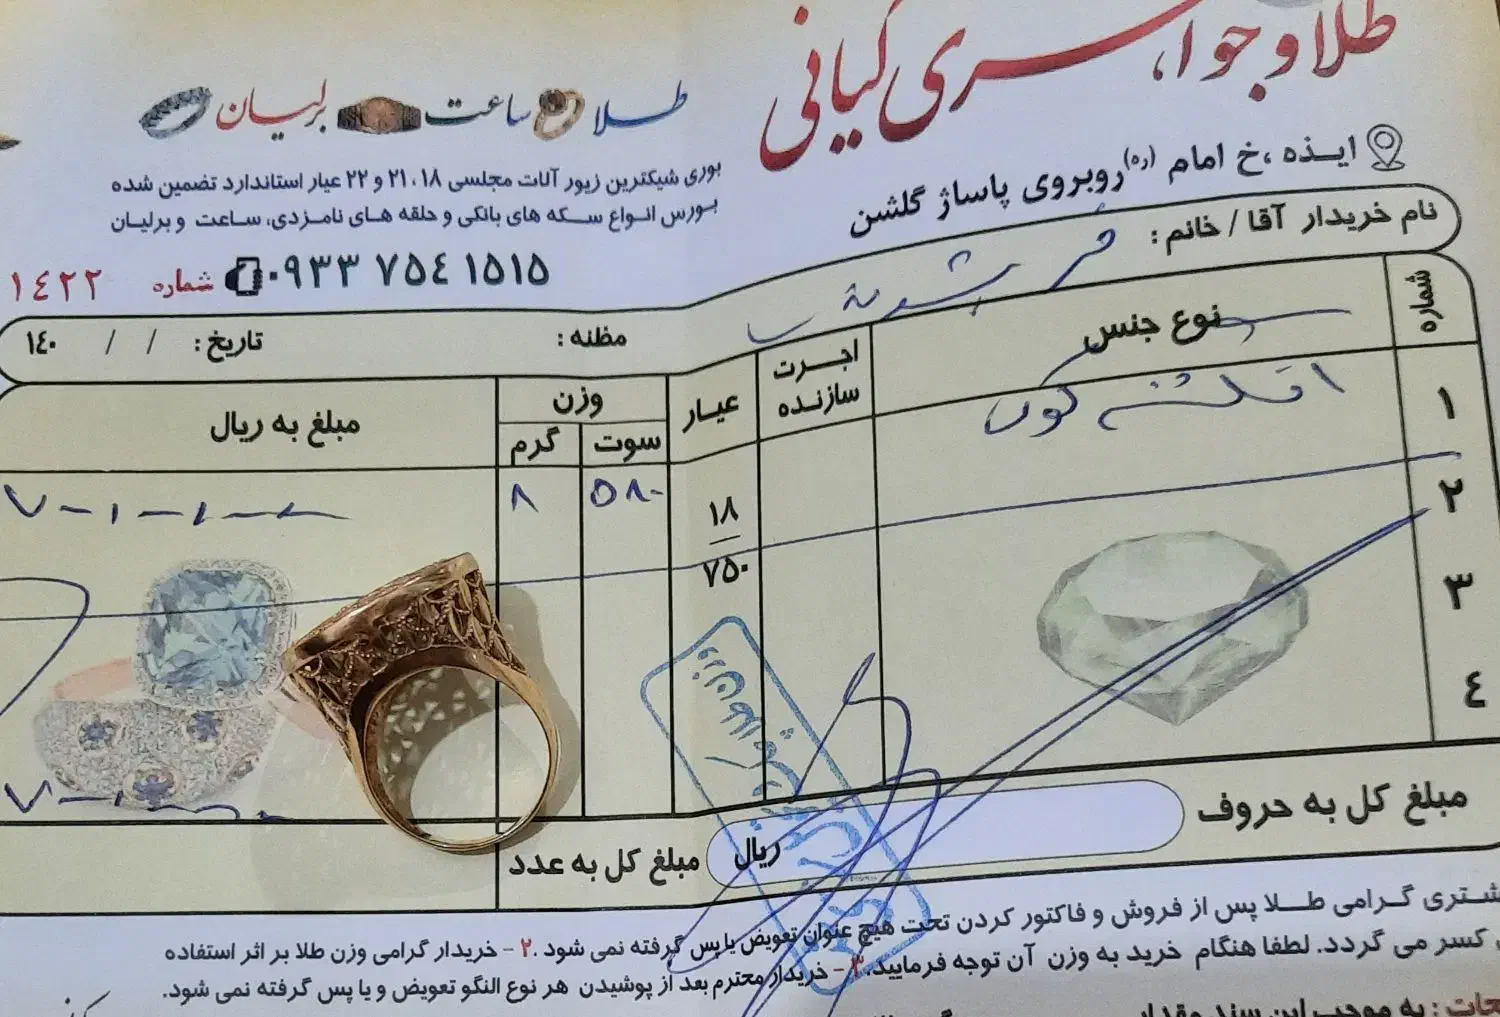 طلا و جواهری کیانی
ایذه ،خ امام (ره) روبروی پاساژ گلشن
طلا ساعت برلیان
بوری شیکترین زیور آلات مجلسی ۲۱،۱۸ و ۲۲ عیار استاندارد تضمین شده
بورس انواع سکه های بانکی و حلقه های نامزدی، ساعت و برلیان
۰۹۳۳ ۷۵٤ ۱۵۱۵
شماره ۱٤۲۲
نام خریدار آقا / خانم :
مظنه :
تاریخ : / / ۱٤۰
شماره
نوع جنس
اجرت سازنده
عیار
وزن
سوت
گرم
مبلغ به ریال
۱
۵۸۰
۸
۱۸
۷۵۰
۲
۳
٤
مبلغ کل به حروف
ریال
مبلغ کل به عدد
شتری گرامی طلا پس از فروش و فاکتور کردن تحت هیچ عنوان تعویض یا پس گرفته نمی شود .۲ - خریدار گرامی وزن طلا بر اثر استفاده
کسر می گردد. لطفا هنگام خرید به وزن آن توجه فرمایید.۳ - خریدار محترم بعد از پوشیدن هر نوع النگو تعویض و یا پس گرفته نمی شود.
حات : به موجب این سند مقدار